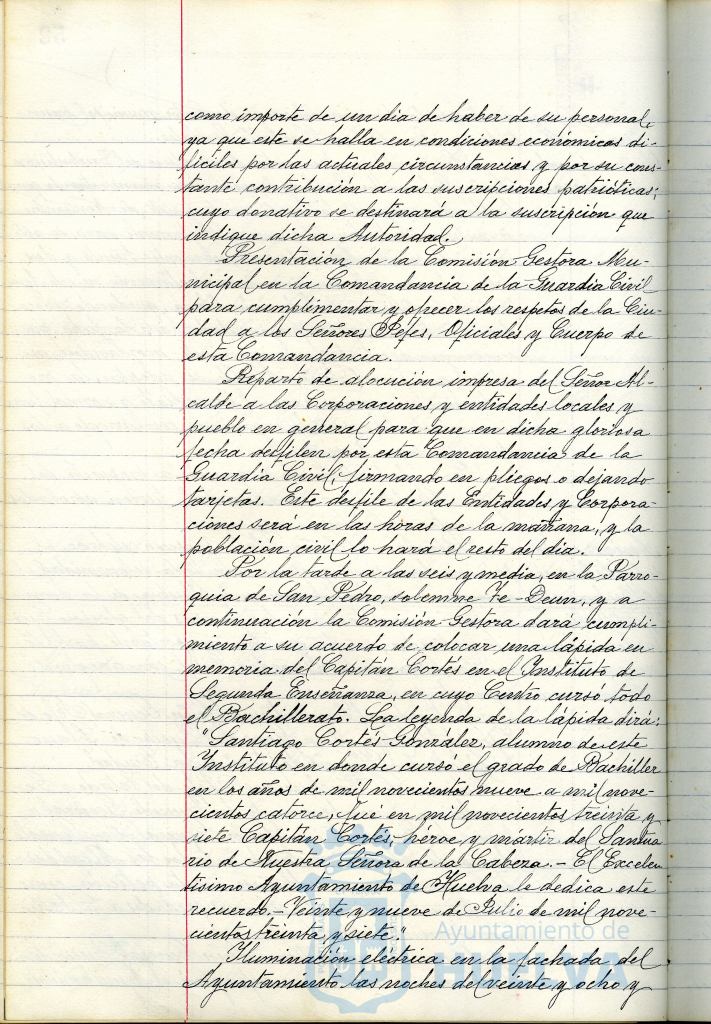 como importe de un dia de haber de su personal,
ya que este se halla en condiciones económicas di-
fíciles por las actuales circunstancias y por su cons-
tante contribución a las suscripciones patrióticas;
cuyo donativo se destinará a la suscripción que
indique dicha Autoridad.
Presentación de la Comisión Gestora Mu-
nicipal en la Comandancia de la Guardia Civil
para cumplimentar y ofrecer los respetos de la Ciu-
dad a los Señores Jefes, Oficiales y Cuerpo de
esta Comandancia.
Reparto de alocución impresa del Señor Al-
calde a las Corporaciones y entidades locales y
pueblo en general para que en dicha gloriosa
fecha desfilen por esta Comandancia de la
Guardia Civil, firmando en pliegos o dejando
tarjetas. Este desfile de las Entidades y Corpora-
ciones será en las horas de la mañana, y la
población civil lo hará el resto del dia.
Por la tarde a las seis y media, en la Parro-
quia de San Pedro, solemne Te-Deun, y a
continuación la Comisión Gestora dará cumpli-
miento a su acuerdo de colocar una lápida en
memoria del Capitán Cortés en el Instituto de
Segunda Enseñanza, en cuyo Centro cursó todo
el Bachillerato. La leyenda de la lápida dirá:
"Santiago Cortés González, alumno de este
Instituto en donde cursó el grado de Bachiller
en los años de mil novecientos nueve a mil nove-
cientos catorce, fué en mil novecientos treinta y
siete Capitán Cortés, héroe y mártir del Santua
rio de Nuestra Señora de la Cabeza.- El Excelen
tísimo Ayuntamiento de Huelva le dedica este
recuerdo.- Veinte y nueve de Julio de mil nove-
cientos treinta y siete"
Iluminación eléctrica en la fachada del
Ayuntamiento las noches del veinte y ocho y
Ayuntamiento de
HUELVA